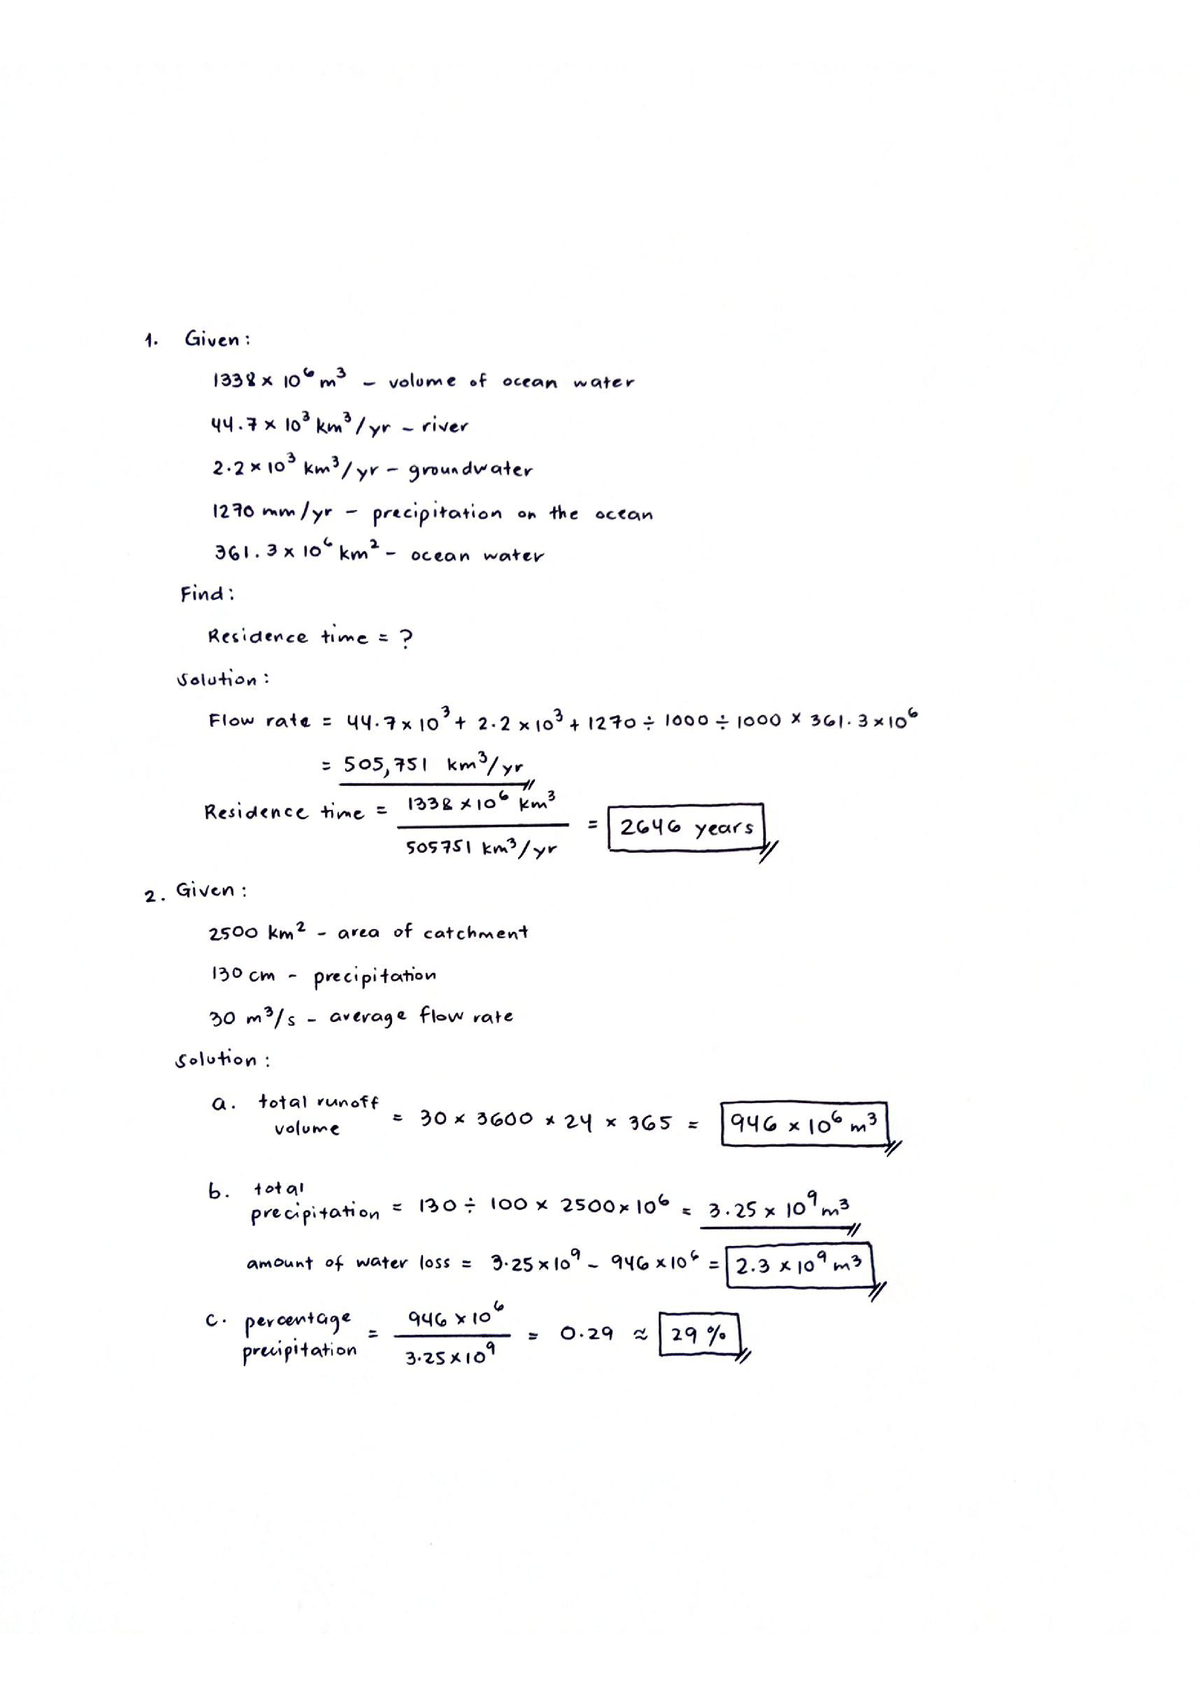 1. Given:
1338 × 10⁶ m³ – volume of ocean water
44.7 × 10³ km³/yr – river
2.2 × 10³ km³/yr – groundwater
1270 mm/yr – precipitation on the ocean
361.3 × 10⁶ km² – ocean water
Find:
Residence time = ?
Solution:
Flow rate = 44.7 × 10³ + 2.2 × 10³ + 1270 ÷ 1000 ÷ 1000 × 361.3 × 10⁶
= 505,751 km³/yr
Residence time = 1338 × 10⁶ km³ / 505751 km³/yr = 2646 years
2. Given:
2500 km² – area of catchment
130 cm – precipitation
30 m³/s – average flow rate
Solution:
a. total runoff volume = 30 × 3600 × 24 × 365 = 946 × 10⁶ m³
b. total precipitation = 130 ÷ 100 × 2500 × 10⁶ = 3.25 × 10⁹ m³
amount of water loss = 3.25 × 10⁹ – 946 × 10⁶ = 2.3 × 10⁹ m³
c. percentage precipitation = 946 × 10⁶ / 3.25 × 10⁹ = 0.29 ≈ 29 %